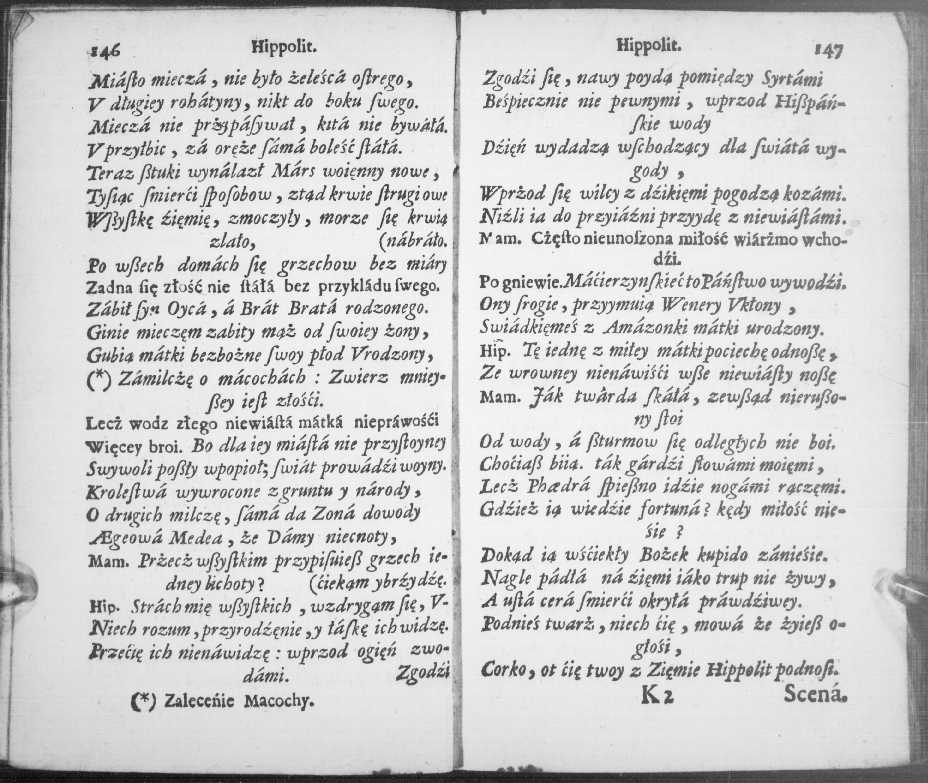 146 Hippolit.
Miáſto mieczá, nie było żeleścá oſtrego,
V długiey rohátyny, nikt do boku ſwego.
Mieczá nie przypáſywał, kitá nie bywáłá.
V przyłbic, zá oręże ſámá boleść ſtáłá.
Teraz ſztuki wynálazł Márs woięnny nowe,
Tyſiąc śmierći ſpoſobow, ztąd krwie ſtrugi owe
Wßyſtkę źięmię, zmoczyły, morze się krwią
zlało, (nábráło.
Po wßech domách ſię grzechow bez miáry
Zadna ſię złość nie ſtáłá bez przykládu ſwego.
Zábił ſyn Oycá, á Brát Bratá rodzonego.
Ginie mieczęm zabity mąż od ſwoiey żony,
Gubią mátki bezbożne ſwoy płod Vrodzony,
(*) Zámilcżę o mácochách : Zwierz mniey-
ßey ieſt złośći.
Lecż wodz złego niewiáſtá mátká niepráwośći
Więcey broi. Bo dla iey miáſtá nie przyſtoyney
Swywoli poßły wpopioł; ſwiát prowádźi woyny.
Kroleſtwá wywrocone z gruntu y národy,
O drugich milczę, ſámá da Zoná dowody
Ægeowá Medea, że Dámy niecnoty,
Mam. Przecż wßyſtkim przypiſuieß grzech ie-
dney lichoty? (ćiekąm ybrźydżę.
Hip. Stráchmię wßyſtkich, wzdrygąm ſię, V-
Niech rozum, przyrodźęnie, y łáſkę ich widzę.
Przećię ich nienáwidzę : wprzod ogięń zwo-
dámi. Zgodźi
(*) Zaleceńie Macochy.
Hippolit. 147
Zgodźi ſię, nawy poydą pomiędzy Syrtámi
Beśpiecznie nie pewnymi, wprzod Hißpáń-
ſkie wody
Dźięń wydadzą wſchodzący dla ſwiátá wy-
gody,
Wprżod ſię wilcy z dźikięmi pogodzą kozámi.
Niźli ia do przyiáźni przyydę z niewiáſtámi.
Mam. Cżęſto nieunoſzona miłość wiárżmo wcho-
dźi.
Po gniewie. Máćierzynſkieć to Páńſtwo wywodźi.
Ony ſrogie, przyymuią Wenery Vkłony,
Swiádkięmeś z Amázonki mátki urodzony.
Hip. Tę iednę z miłey mátki pociechę odnoßę,
Ze wrowney nienáwiśći wße niewiáſty noßę
Mam. Ják twárda ſkáłá, zewßąd nierußo-
ny ſtoi
Od wody, á ßturmow ſię odległych nie boi.
Choćiaß biią. ták gárdźi ſłowámi moięmi,
Lecż Phædrá ſpießno idzie nogámi rączęmi.
Gdźież ią wiedzie fortuná? kędy miłość nie-
śie ?
Dokąd ią wśćiekły Bożek kupido zánieśie.
Nagle pádłá ná źięmi iáko trup nie żywy,
A uſtá cerá śmierći okryłá práwdźiwey.
Podnieś twarż, niech ćię, mowá że żyieß o-
głośi,
Corko, ot ćię twoy z Zięmie Hippolit podnoſi.
K 2 Scená.